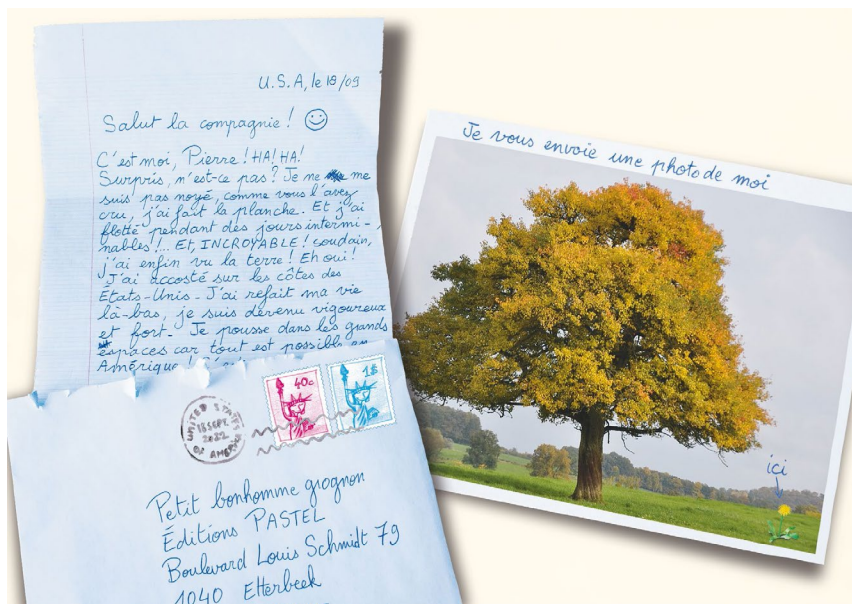 U.S.A, le 18/09
Salut la compagnie !
C'est moi, Pierre ! HA! HA!
Surpris, n'est-ce pas ? Je me me
suis pas noyé, comme vous l'avez
cru, j'ai fait la planche. Et j'ai
flotté pendant des jours intermi-
nables !.. Et, INCROYABLE ! soudain,
j'ai enfin vu la terre ! Eh oui !
J'ai accosté sur les côtes des
États-Unis - J'ai refait ma vie
là-bas, je suis devenu vigoureux
et fort - Je pousse dans les grands
espaces car tout est possible en
Amérique
40c
1$
UNITED STATES
18 SEPT.
2022
OF AMERICA
Petit bonhomme grognon
Éditions PASTEL
Boulevard Louis Schmidt 79
1040 Etterbeek
Je vous envoie une photo de moi
ici